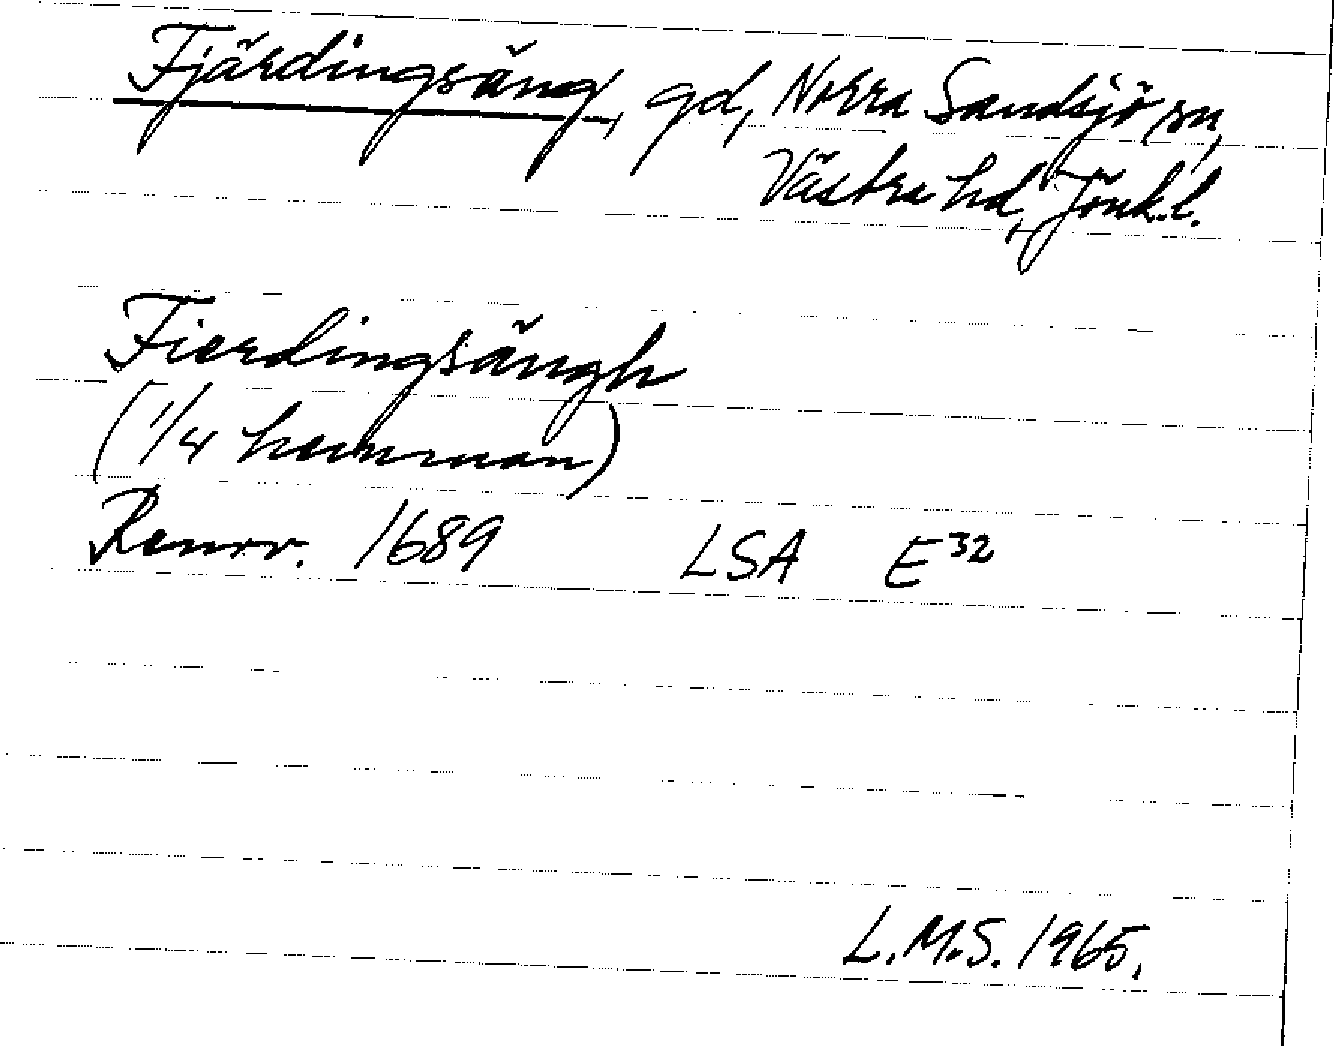 Fjärdingsäng, gd, Norra Sandsjö sn,
Västra hd, Jönk.l.
Fierdingsängh
(1/4 hemman)
Renov. 1689 LSA E³²
L.M.S. 1965.